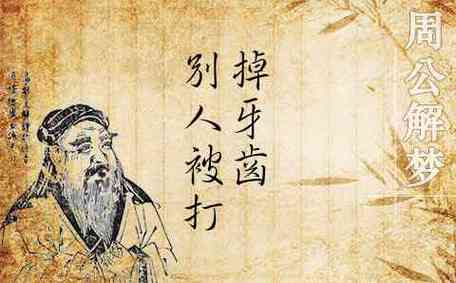 周公解梦
掉牙齿
别人被打